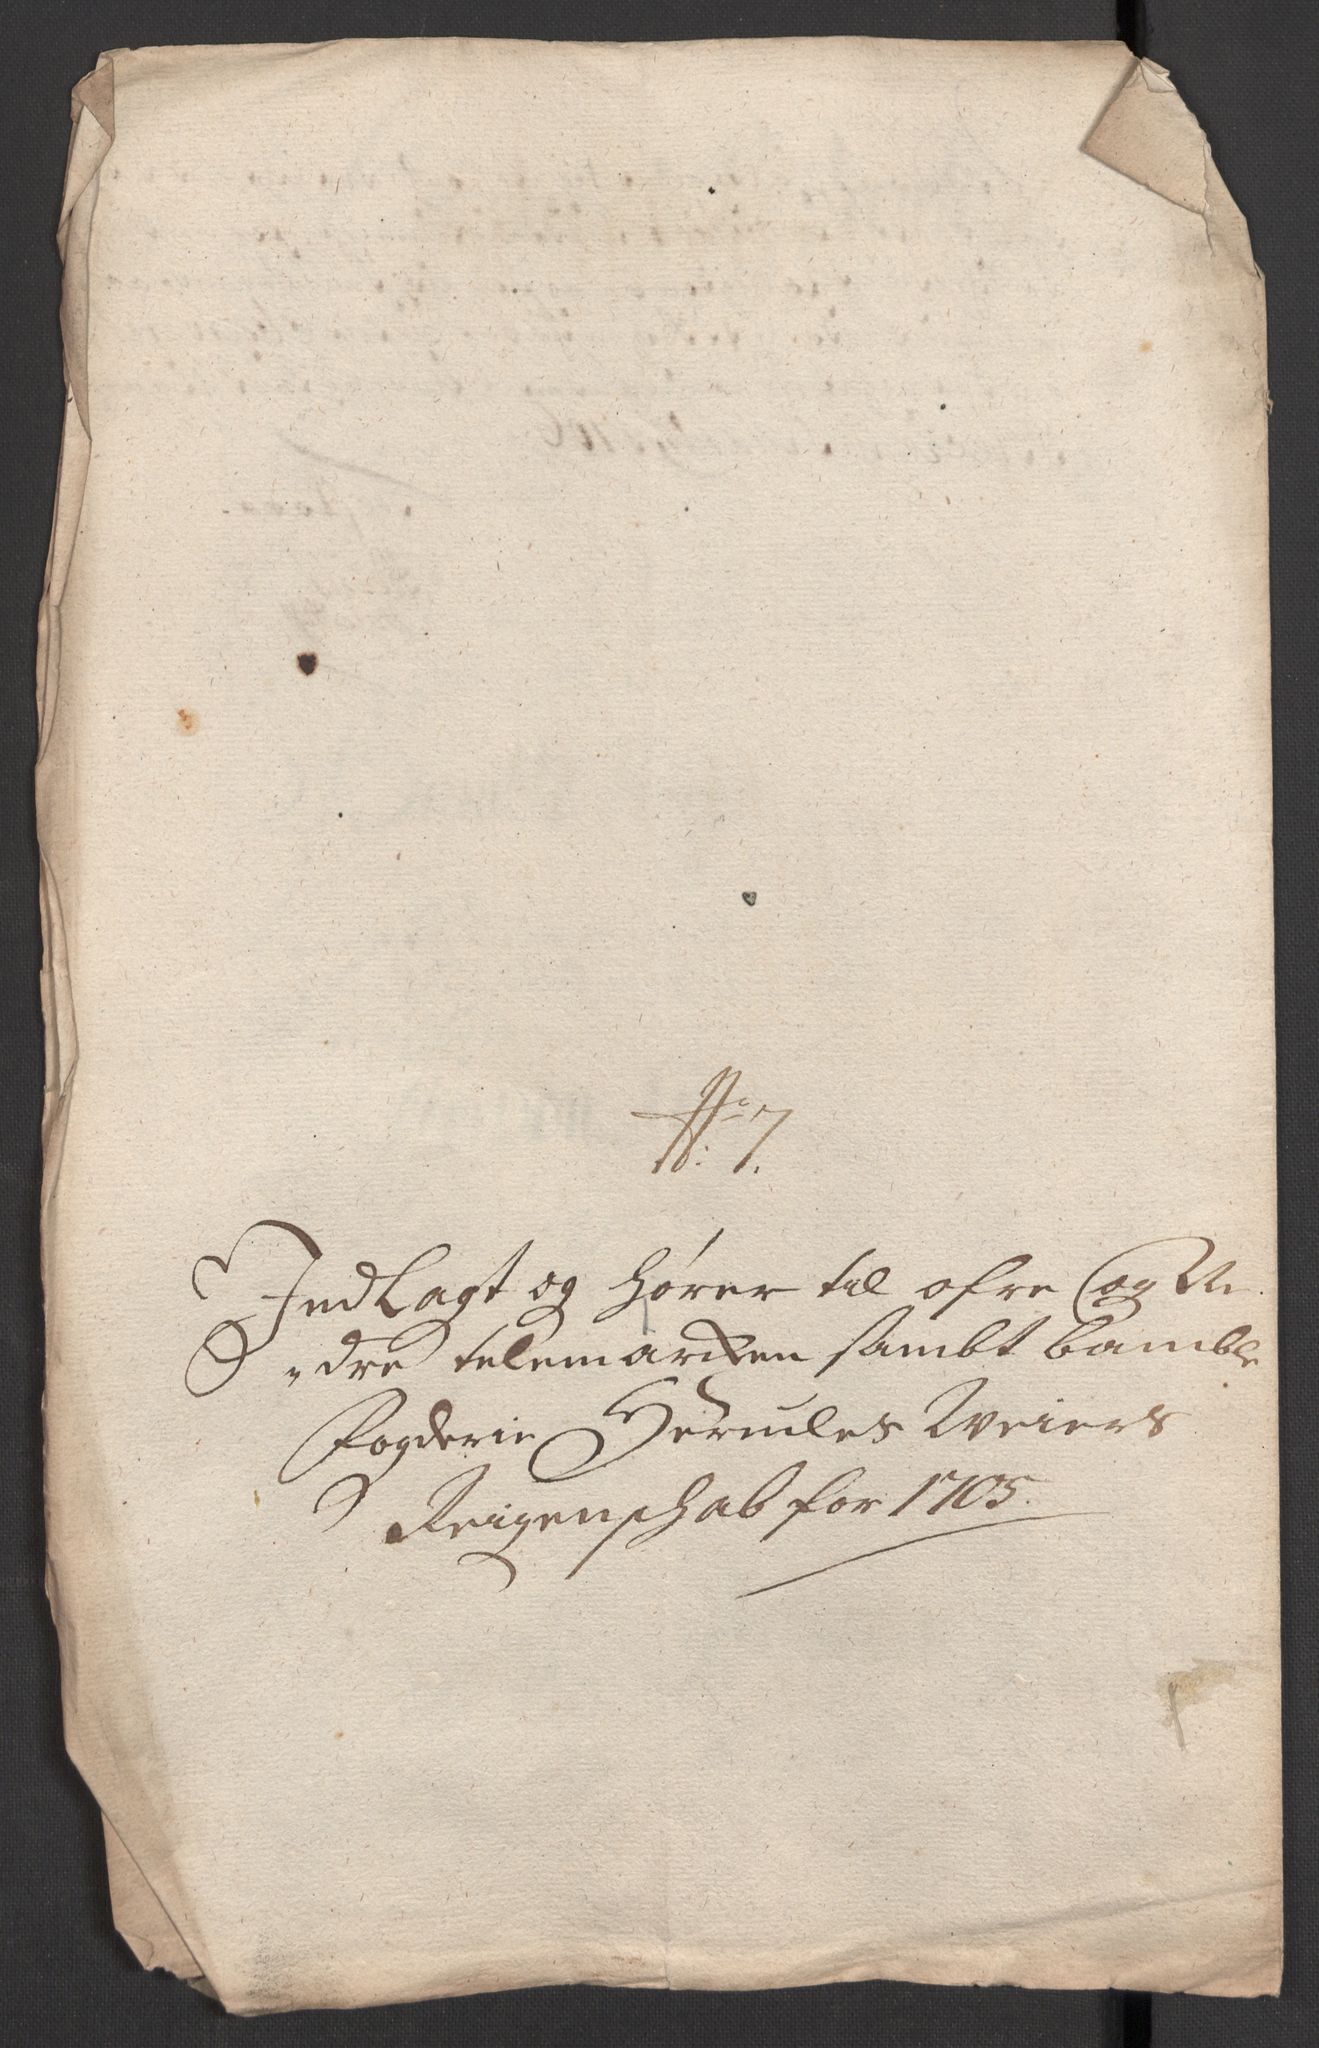 No: 7.
IndLagt og hører til øfre og Ne
„dre telemarken sambt bamble
fogderie Hercules Weiers
Reigenschab for 1705.